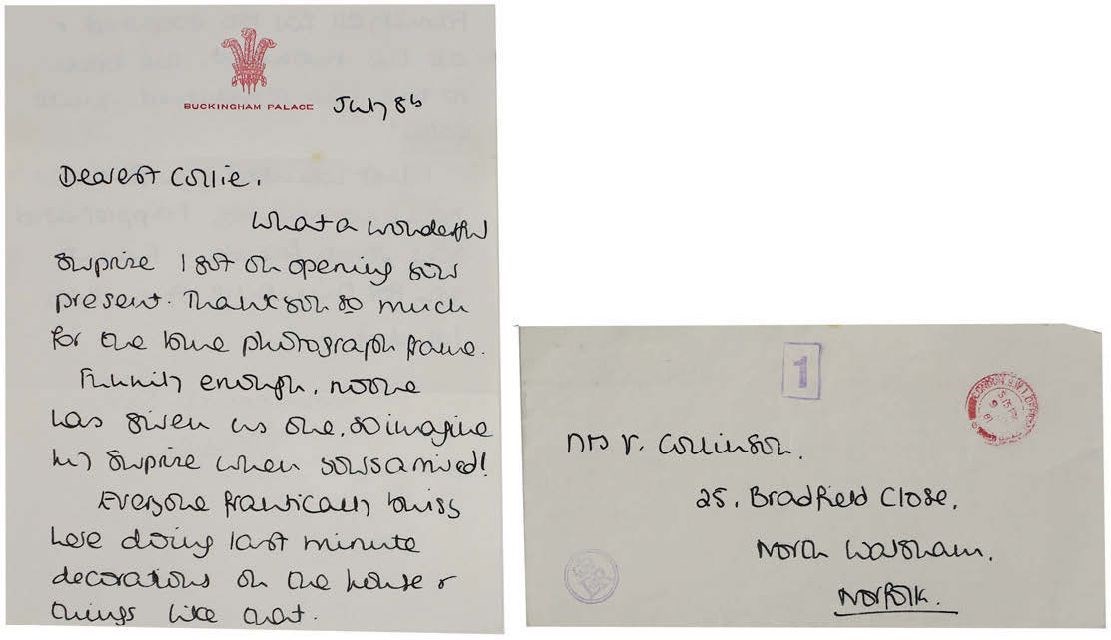 BUCKINGHAM PALACE July 8th
Dearest Collie,
What a wonderful
surprise I got on opening your
present. Thank you so much
for the blue photograph frame.
Funnily enough, noone
has given us one, so imagine
my surprise when yours arrived!
Everyone frantically busy
here doing last minute
decorations on the house &
things like that.
1
LONDON S.W.1
Mrs V. Collinson.
25, Bradfield Close,
North Walsham,
Norfolk.